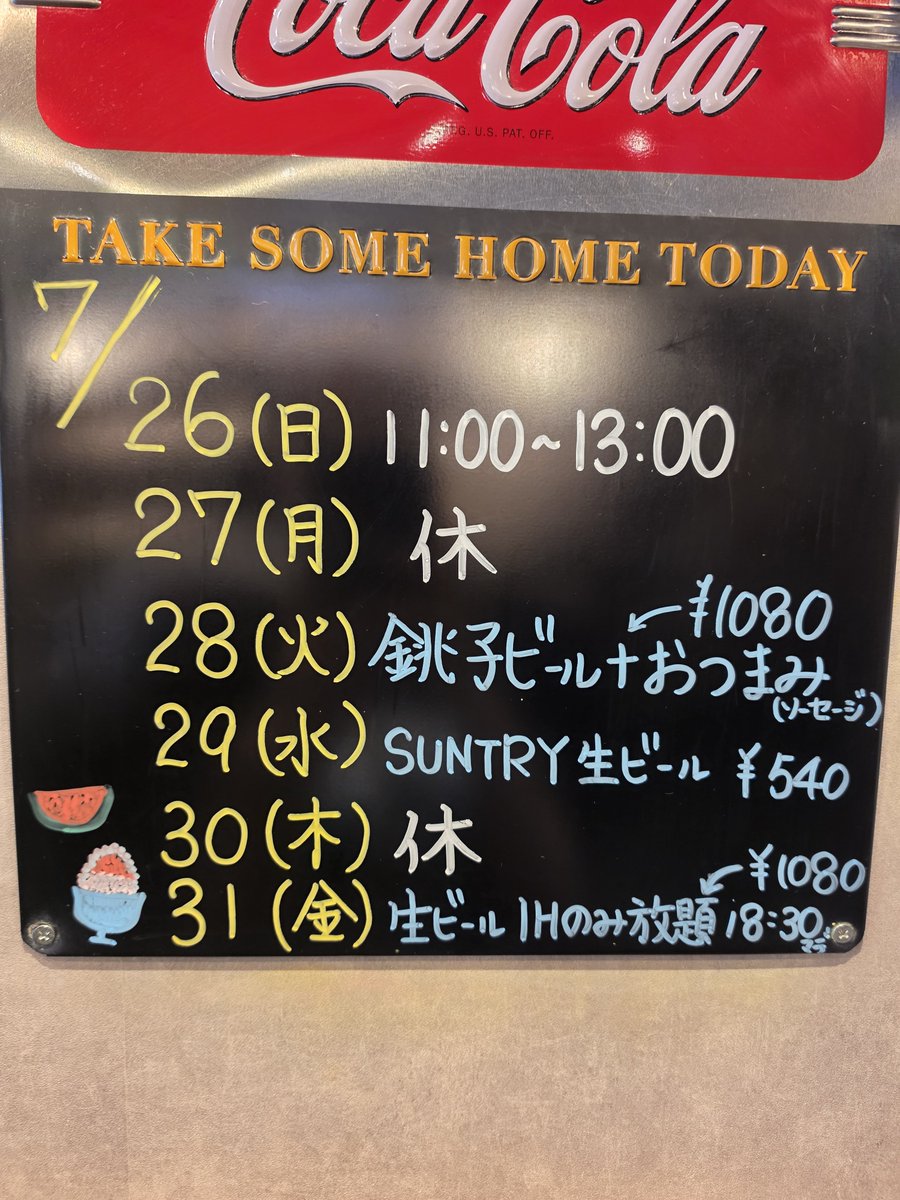 Coca-Cola
REG. U.S. PAT. OFF.
TAKE SOME HOME TODAY
7/
26(日) 11:00~13:00
27(月) 休
¥1080
28(火) 銚子ビール+おつまみ
(ソーセージ)
29(水) SUNTRY生ビール ¥540
30(木) 休
¥1080
31(金) 生ビール 1Hのみ放題 18:30
マデ